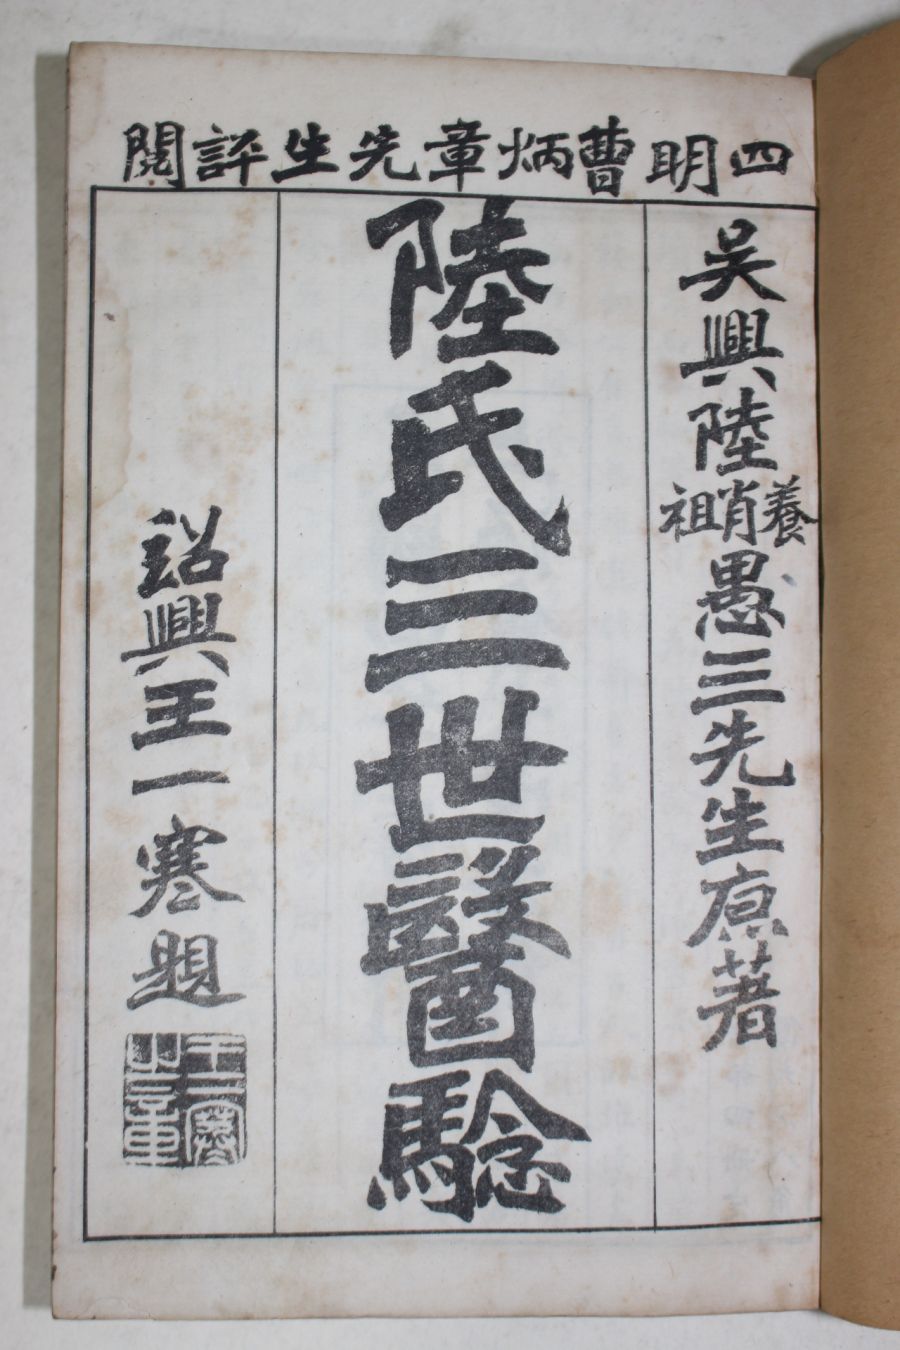 四明曹炳章先生評閱
吳興陸養晡祖愚三先生原著
陸氏三世醫驗
紹興王一寒題
王一寒章